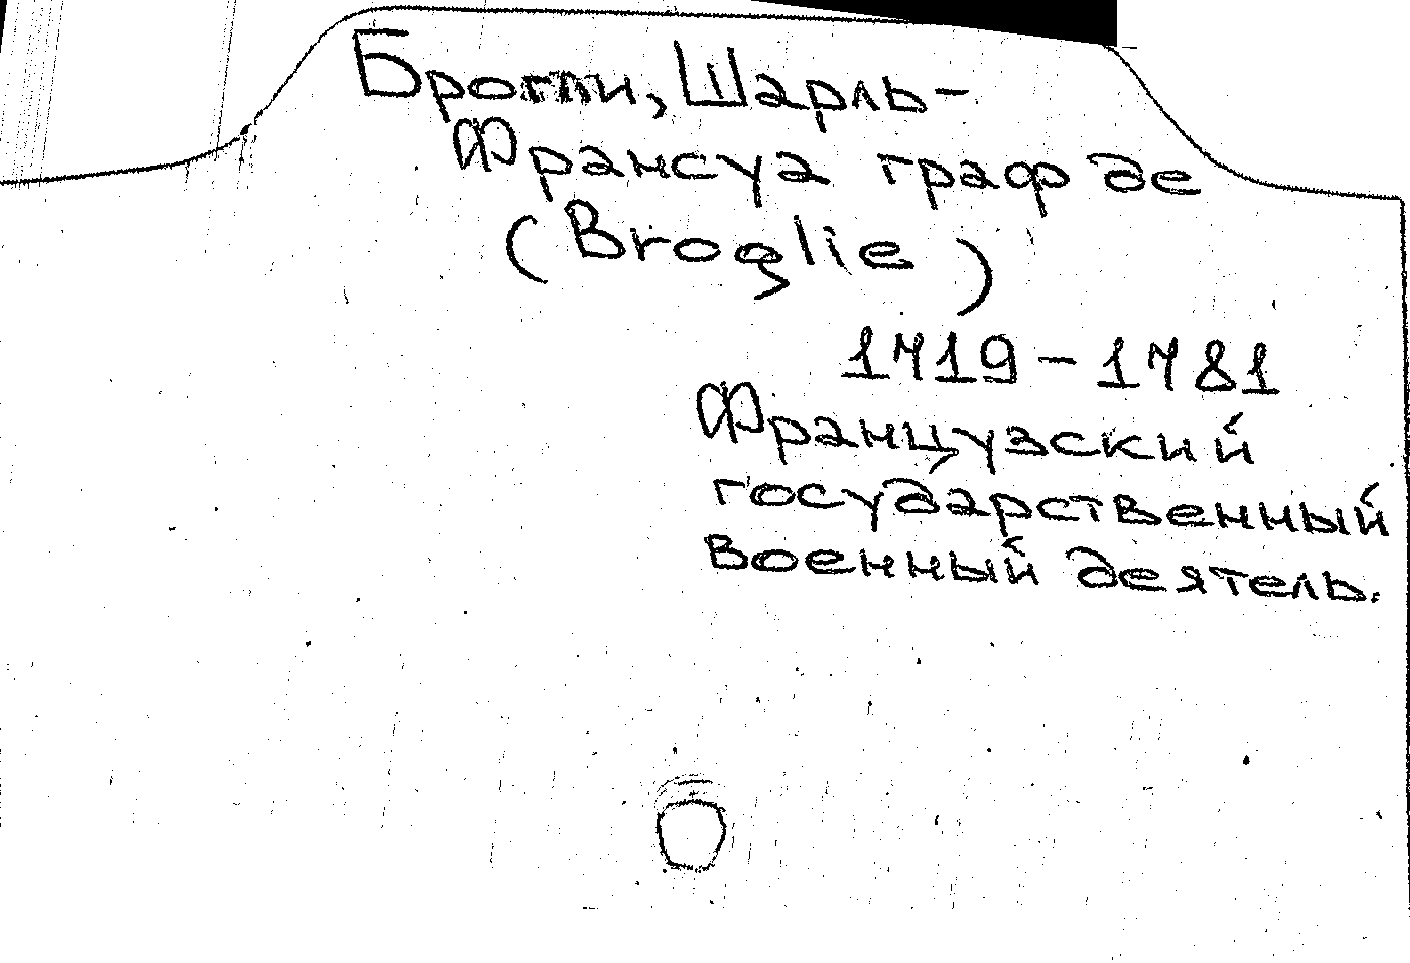 Брогли, Шарль-
Франсуа граф де
(Broglie)
1719-1781
Французский
государственный
военный деятель.